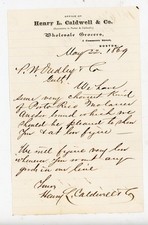 OFFICE OF
Henry L. Caldwell & Co.
Wholesale Grocers,
BOSTON,
May 22, 1869
P. W. Dudley & Co
We have
some very choice
of Porto Rico Molasses
which we
should be pleased to show
you & at low figure
We will figure very low
whenever you want any
goods in our line
Yours
Henry L. Caldwell & Co